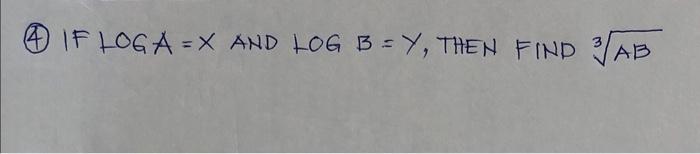 ④ IF LOG A = X AND LOG B = Y, THEN FIND ∛AB